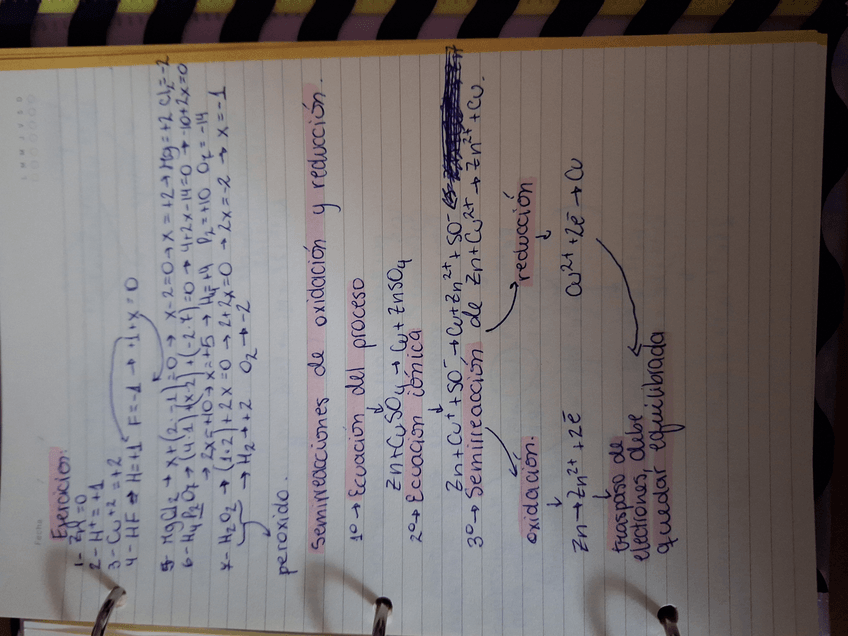 Fecha
Ejercicion:
1- Zn = 0
2- H⁺ = +1
3- Cu⁺² = +2
4- HF → H = +1 F = -1 → +1 + x = 0
5- MgCl₂ → x + (2 · -1) = 0 → x - 2 = 0 → x = +2 → Mg = +2 Cl₂ = -2
6- H₄P₂O₇ → (4·1) + (x·2) + (-2·7) = 0 → 4 + 2x - 14 = 0 → -10 + 2x = 0
→ 2x = +10 → x = +5 → H₄ = +4 P₂ = +10 O₇ = -14
x- H₂O₂ → (1·2) + 2x = 0 → 2 + 2x = 0 → 2x = -2 → x = -1
→ H₂ → +2 O₂ → -2
peroxido.
Semirreacciones de oxidación y reducción.
1º → Ecuación del proceso
Zn + CuSO₄ → Cu + ZnSO₄
2º → Ecuación iónica
Zn + Cu⁺ + SO⁻ → Cu + Zn²⁺ + SO⁻
3º → Semirreacción de Zn + Cu²⁺ → Zn²⁺ + Cu.
oxidación. reducción
Zn → Zn²⁺ + 2ē Cu²⁺ + 2ē → Cu
traspaso de
electrones debe
quedar equilibrada